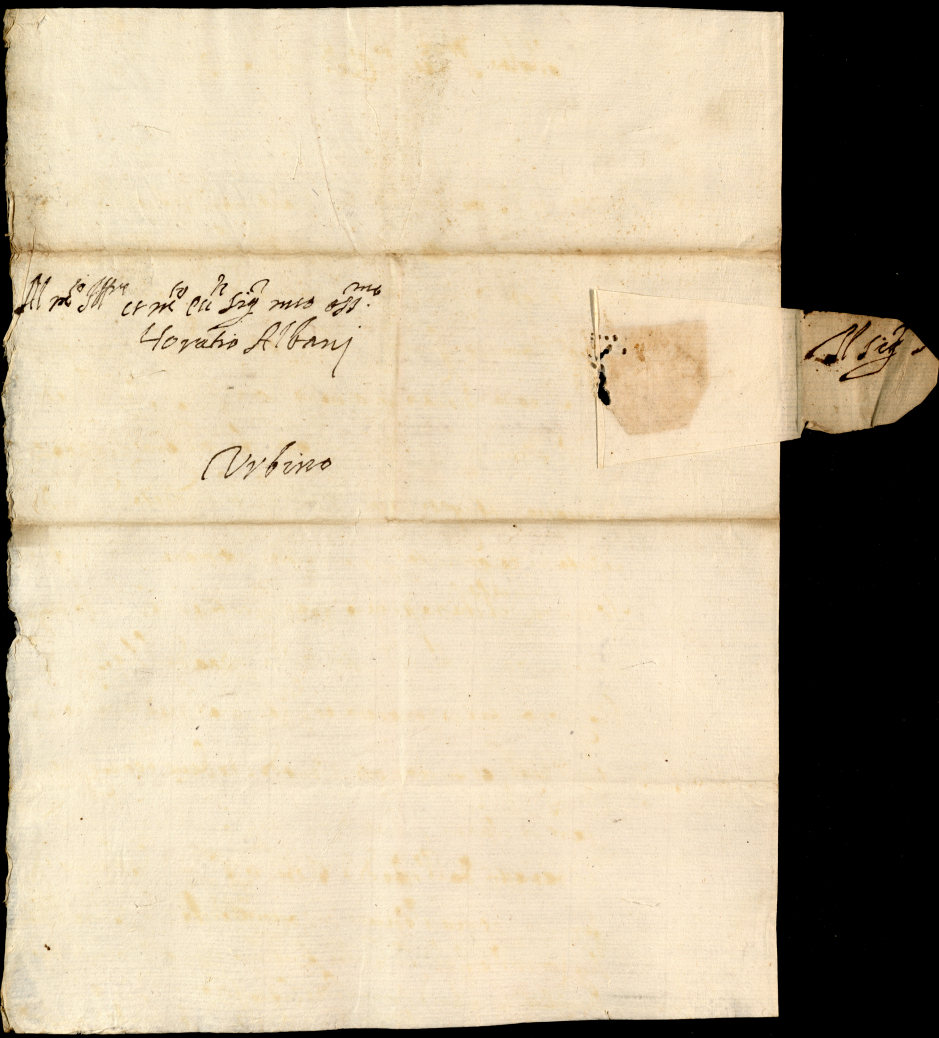 Al m.to Ill.re et m.to Ecc.te Sig.r mio oss.mo
Horatio Albani
Urbino
Al Sig.r